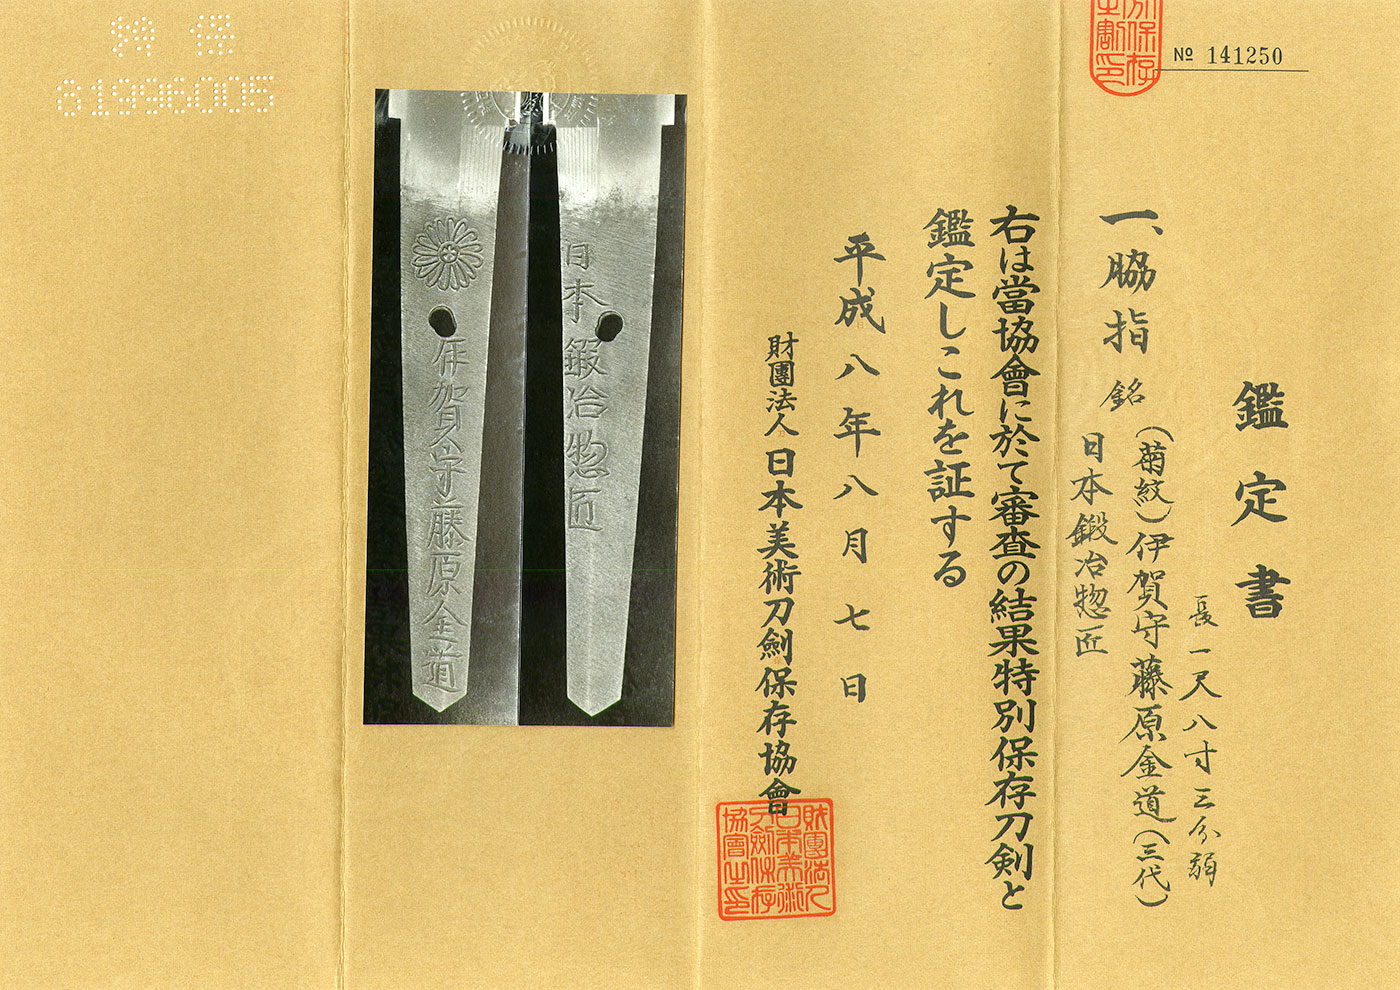 № 141250
鑑定書
一、脇指 銘 (菊紋)伊賀守藤原金道(三代)
日本鍛冶惣匠
長一尺八寸三分弱
右は當協會に於て審査の結果特別保存刀剣と
鑑定しこれを証する
平成八年八月七日
財團法人日本美術刀劍保存協會
財團法人
日本美術
刀劍保存
協會之印
日本鍛冶惣匠
伊賀守藤原金道
特保
81996005